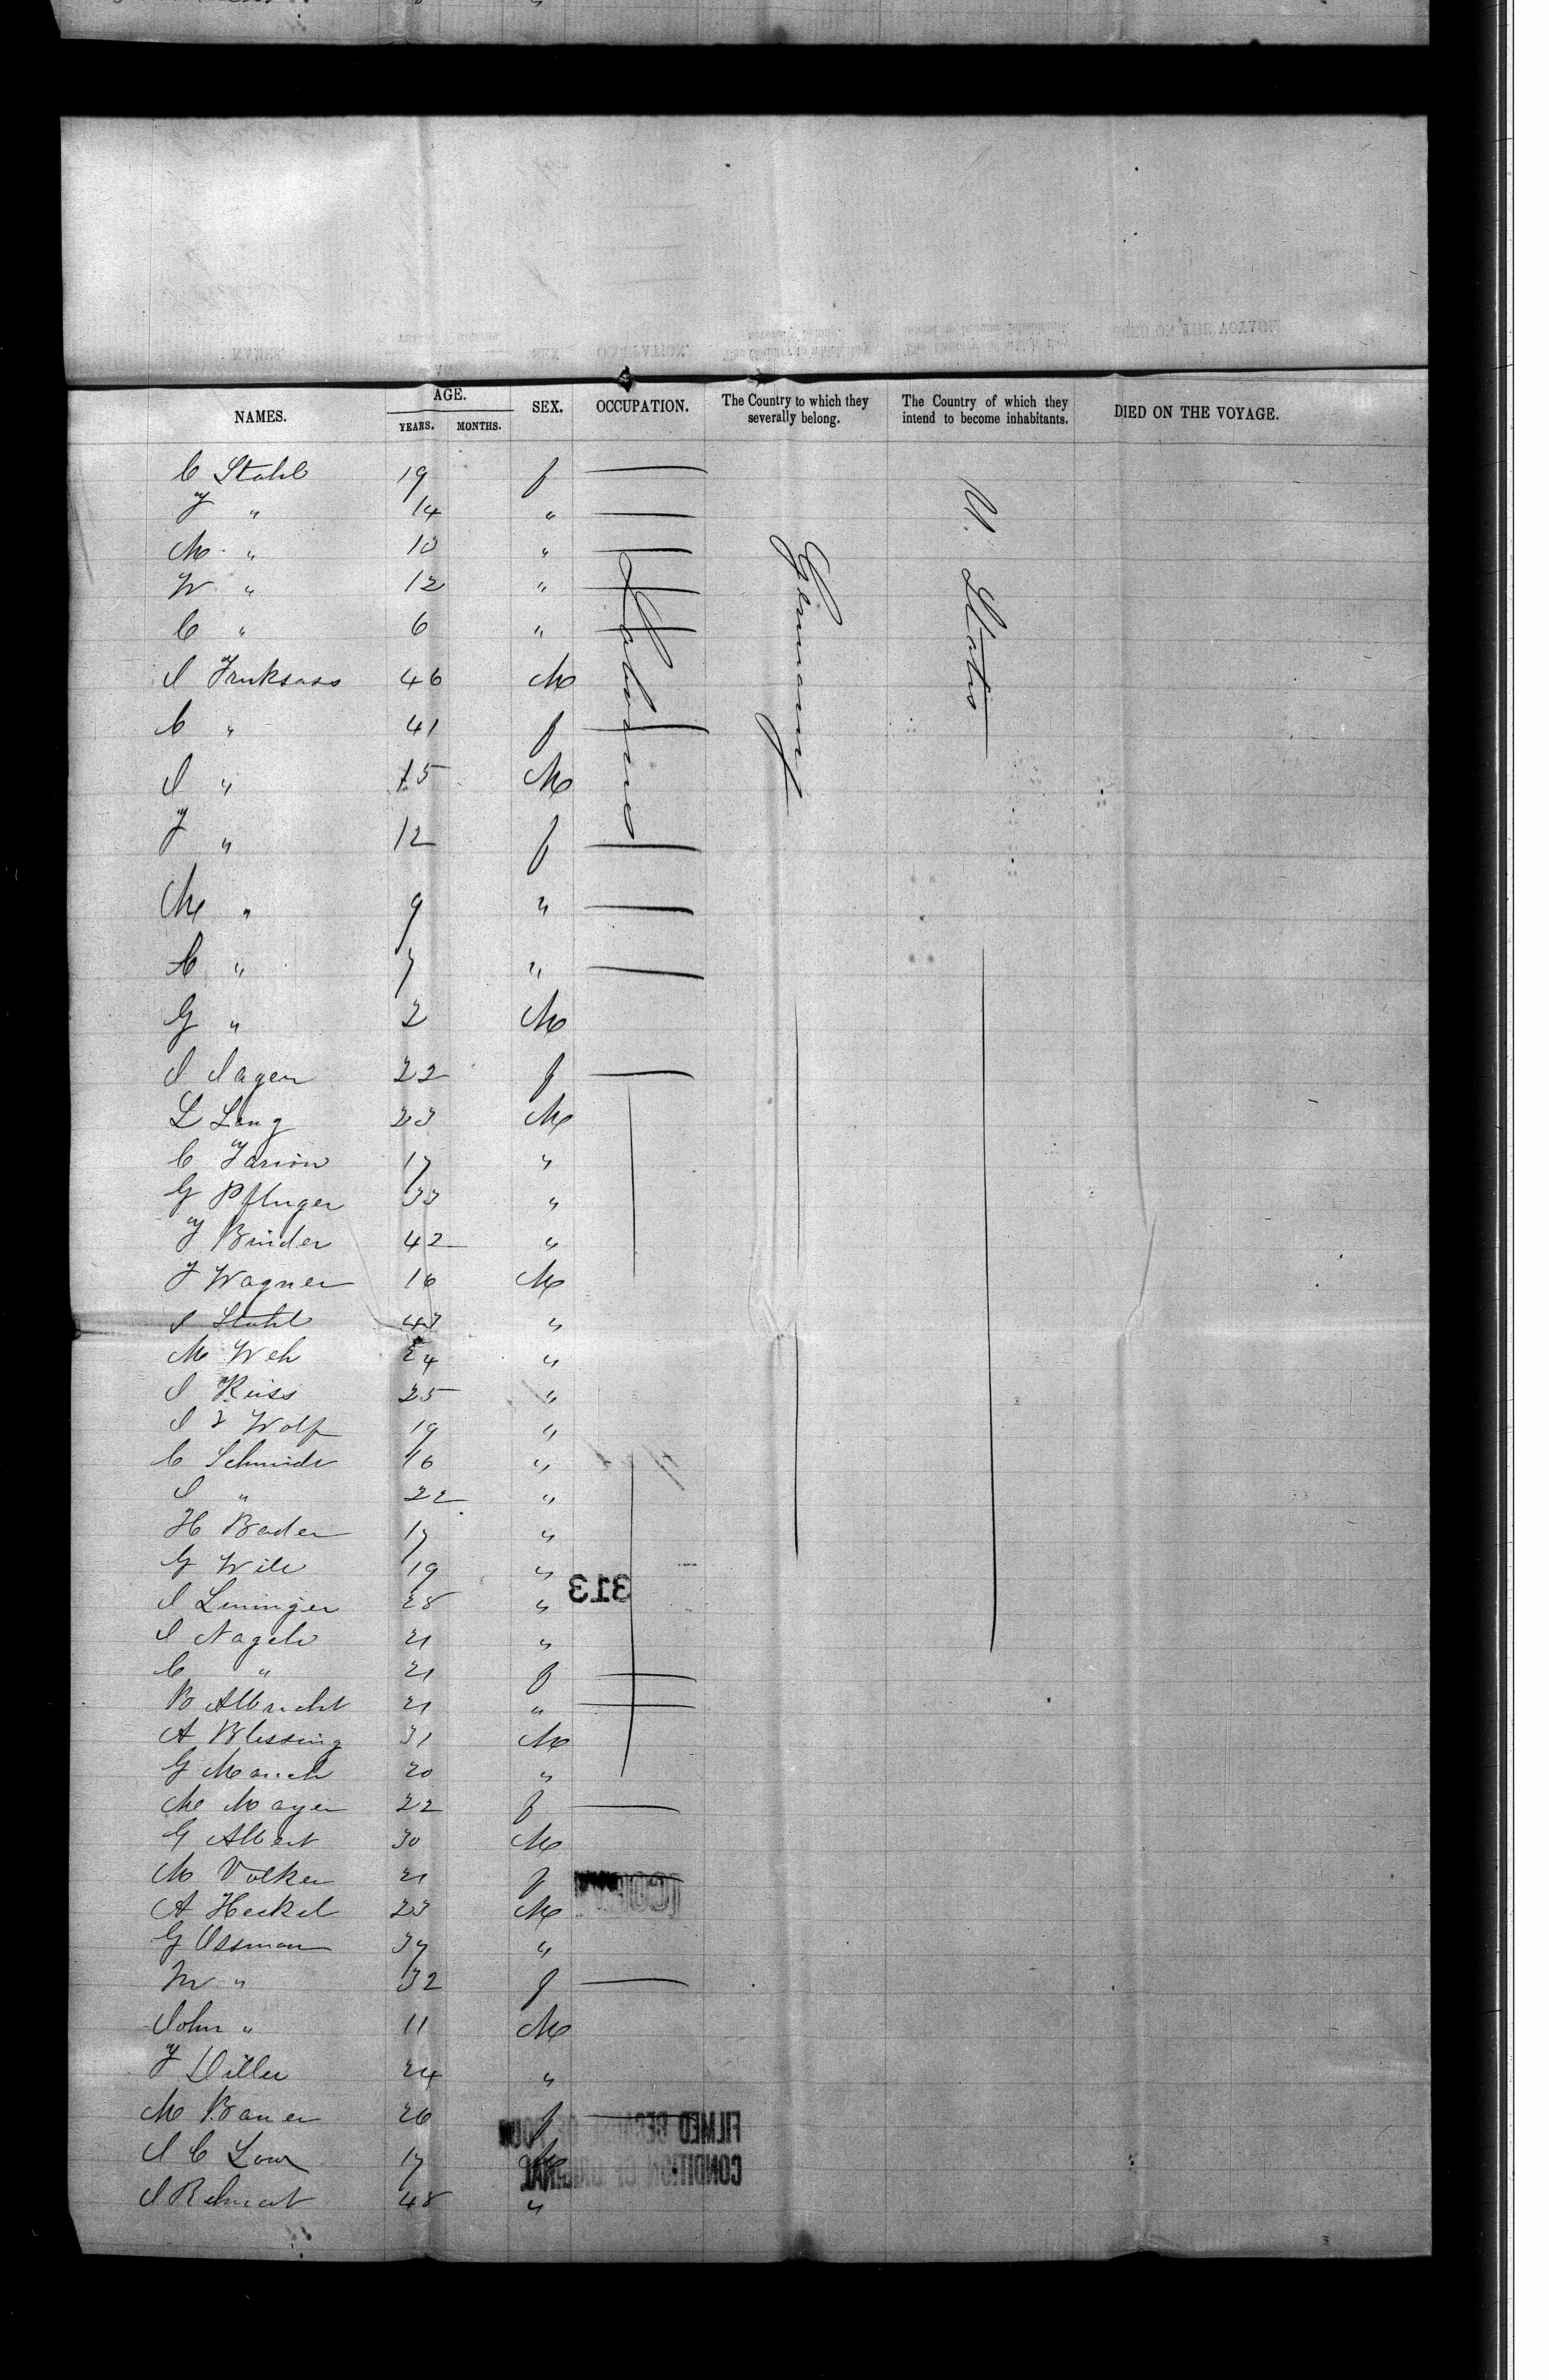 NAMES. AGE. YEARS. MONTHS. SEX. OCCUPATION. The Country to which they severally belong. The Country of which they intend to become inhabitants. DIED ON THE VOYAGE.
C Stahl 19 f —
F " 14 " —
M " 13 " —
W " 12 " —
C " 6 " —
Labourers
Germany
U. States
J 46 M
C " 41 f —
J " 15 M
F " 12 f —
M " 9 " —
C " 7 " —
G " 2 M
J Jager 22 f —
L Lang 23 M
C 17 "
G Pfluger 33 "
F Binder 42 "
J Wagner 16 M
J Stahl 43 "
M Weh 24 "
J Reiss 25 "
J F Wolf 19 "
C Schmidt 16 "
J " 22 "
H Bader 17 "
G Wile 19 "
313
J Lininger 28 "
J Nagele 21 "
C " 21 f —
B Albrecht 21 " —
A Blessing 31 M
G Mauch 20 "
M Mayer 22 f —
G Albert 30 M
M Volker 21 f —
A Heckel 23 M
G Ossman 37 "
M " 32 f —
John " 11 M
F Diller 24 "
M Bauer 26 f —
J C Low 17 M
J 48 "
FILMED BECAUSE OF POOR
CONDITION OF ORIGINAL